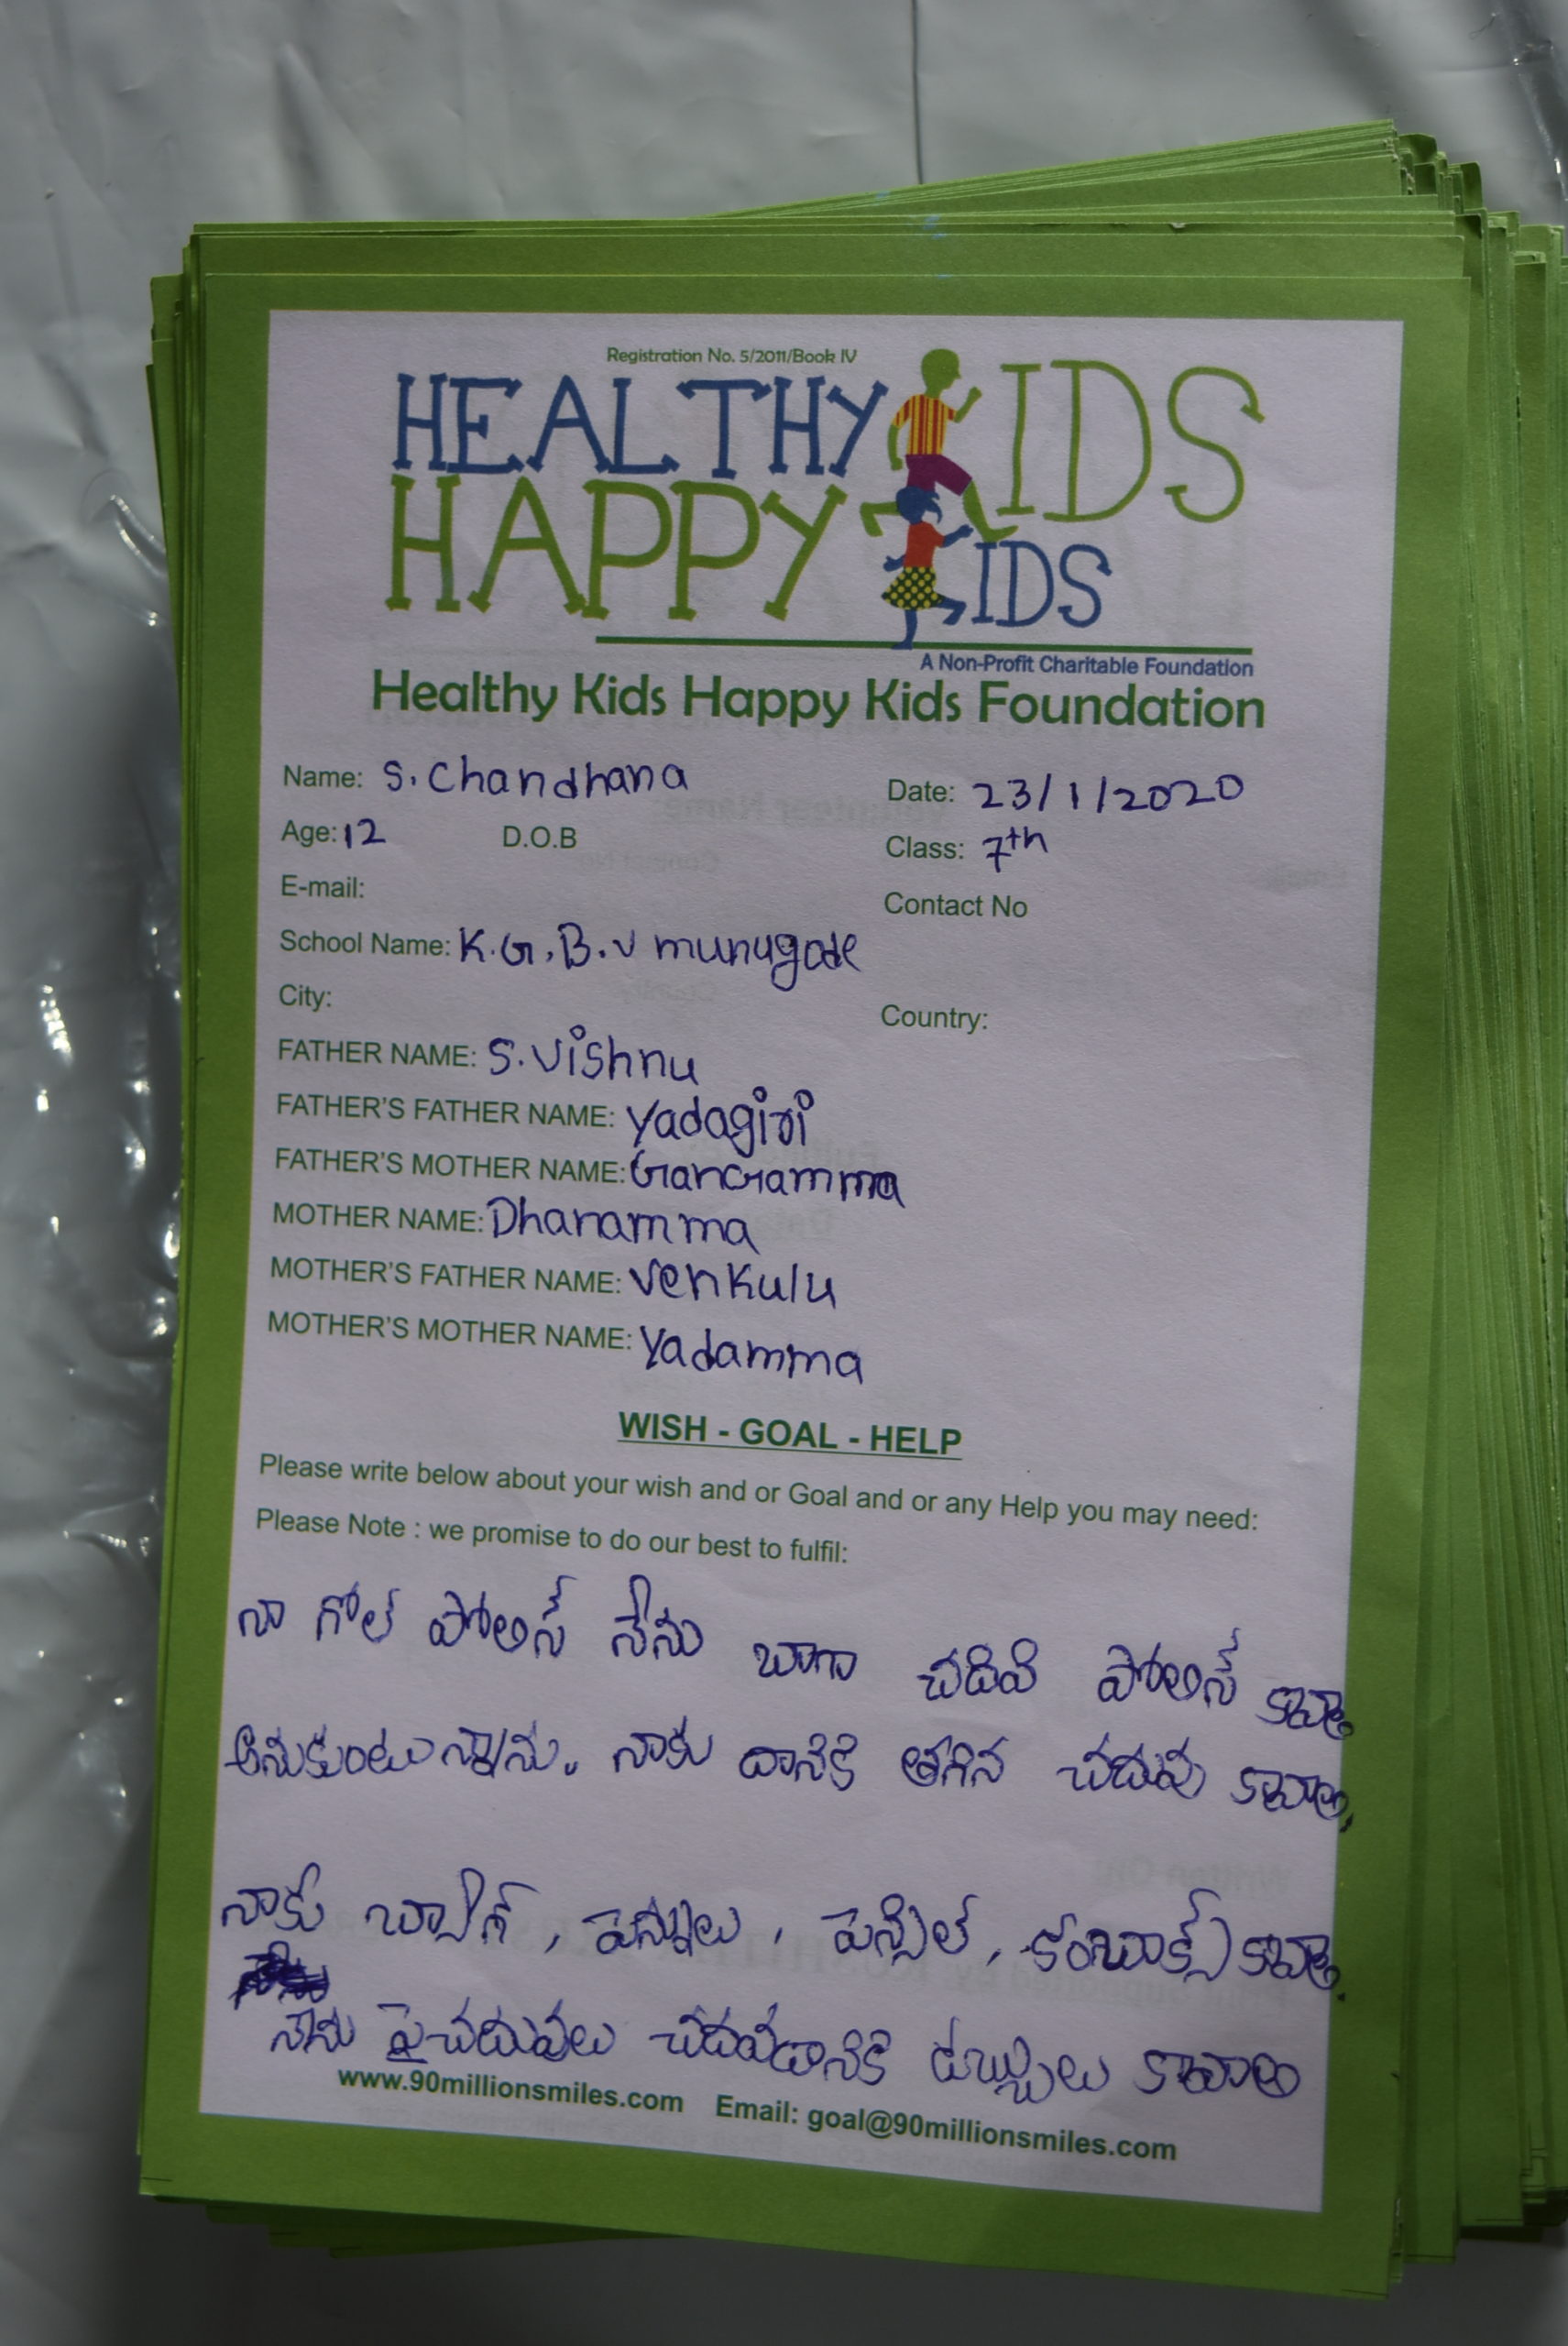 Registration No. 5/2011/Book IV
HEALTHY KIDS
HAPPY KIDS
A Non-Profit Charitable Foundation
Healthy Kids Happy Kids Foundation
Name: S. Chandhana Date: 23/1/2020
Age: 12 D.O.B Class: 7th
E-mail: Contact No
School Name: K.G.B.V munugode
City: Country:
FATHER NAME: S. Vishnu
FATHER'S FATHER NAME: Yadagiri
FATHER'S MOTHER NAME: GanGamma
MOTHER NAME: Dhanamma
MOTHER'S FATHER NAME: Venkulu
MOTHER'S MOTHER NAME: Yadamma
WISH - GOAL - HELP
Please write below about your wish and or Goal and or any Help you may need:
Please Note : we promise to do our best to fulfil:
నా గోల్ పోలిస్ నేను బాగా చదివి పోలిస్
అనుకుంటున్నాను. నాకు దానికి తగిన చదువు కావాలి,
నాకు బ్యాగ్, పెన్నులు, పెన్సిల్, కంబాక్స్
నేను పైచదువులు చదవడానికి డబ్బులు కావాలి
www.90millionsmiles.com Email: goal@90millionsmiles.com